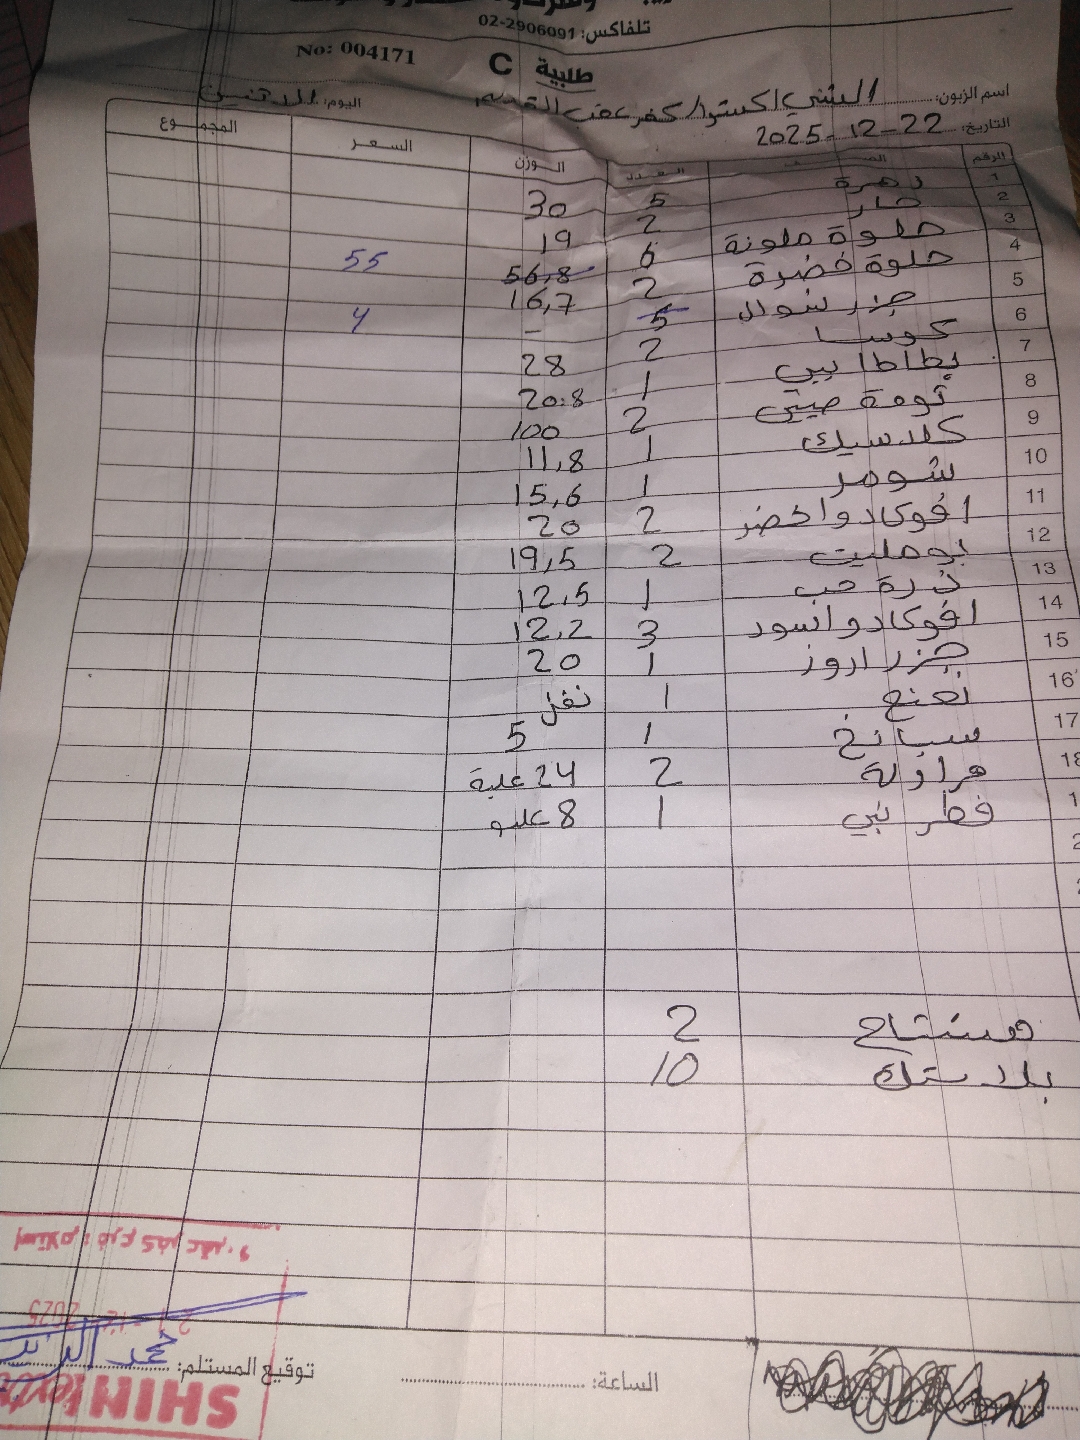 تلفاكس: 02-2906091
No: 004171
طلبية C
اسم الزبون: الشني اكسترا/كفر عقب القديم اليوم: الاثنين
التاريخ: 22-12-2025
الرقم الصنف العدد الوزن السعر المجموع
1 زهرة 5 30
2 حار 2 19
3 حلوة ملونة 6 56,8 55
4 حلوة خضرة 2 16,7
5 جزر شوال 5 - 4
6 كوسا 2 28
7 بطاطا بيبي 1 20.8
8 ثومة صيني 2 100
9 كلاسيك 1 11,8
10 شومر 1 15,6
11 افوكادو اخضر 2 20
12 بومليت 2 19,5
13 ذرة حب 1 12,5
14 افوكادو اسود 3 12,2
15 جزر اروز 1 20
16 نعنع 1 نفل
17 سبانخ 1 5
18 فراولة 2 24 علبة
فطر بني 1 8 علبو
مشتاح 2
بلاستك 10
إستلام: فرع كفر عقب
2025
توقيع المستلم: محمد
الساعة:
SHINI